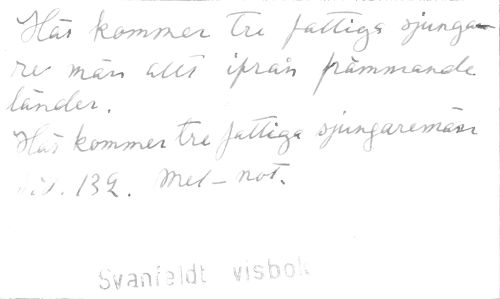 Här kommer tre fattiga sjunga-
re män allt ifrån främmande
länder.
Här kommer tre fattiga sjungaremän
sid. 132. Mel-not.
Svanfeldt visbok